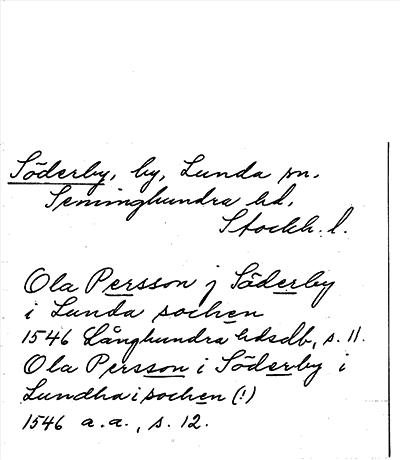 Söderby, by, Lunda sn.
Seminghundra hd.
Stockh. l.
Ola Persson j Söderby
i Lunda sochen
1546 Långhundra hdsdb, s. 11.
Ola Persson i Söderby i
Lundha i sochen (!)
1546 a.a., s. 12.